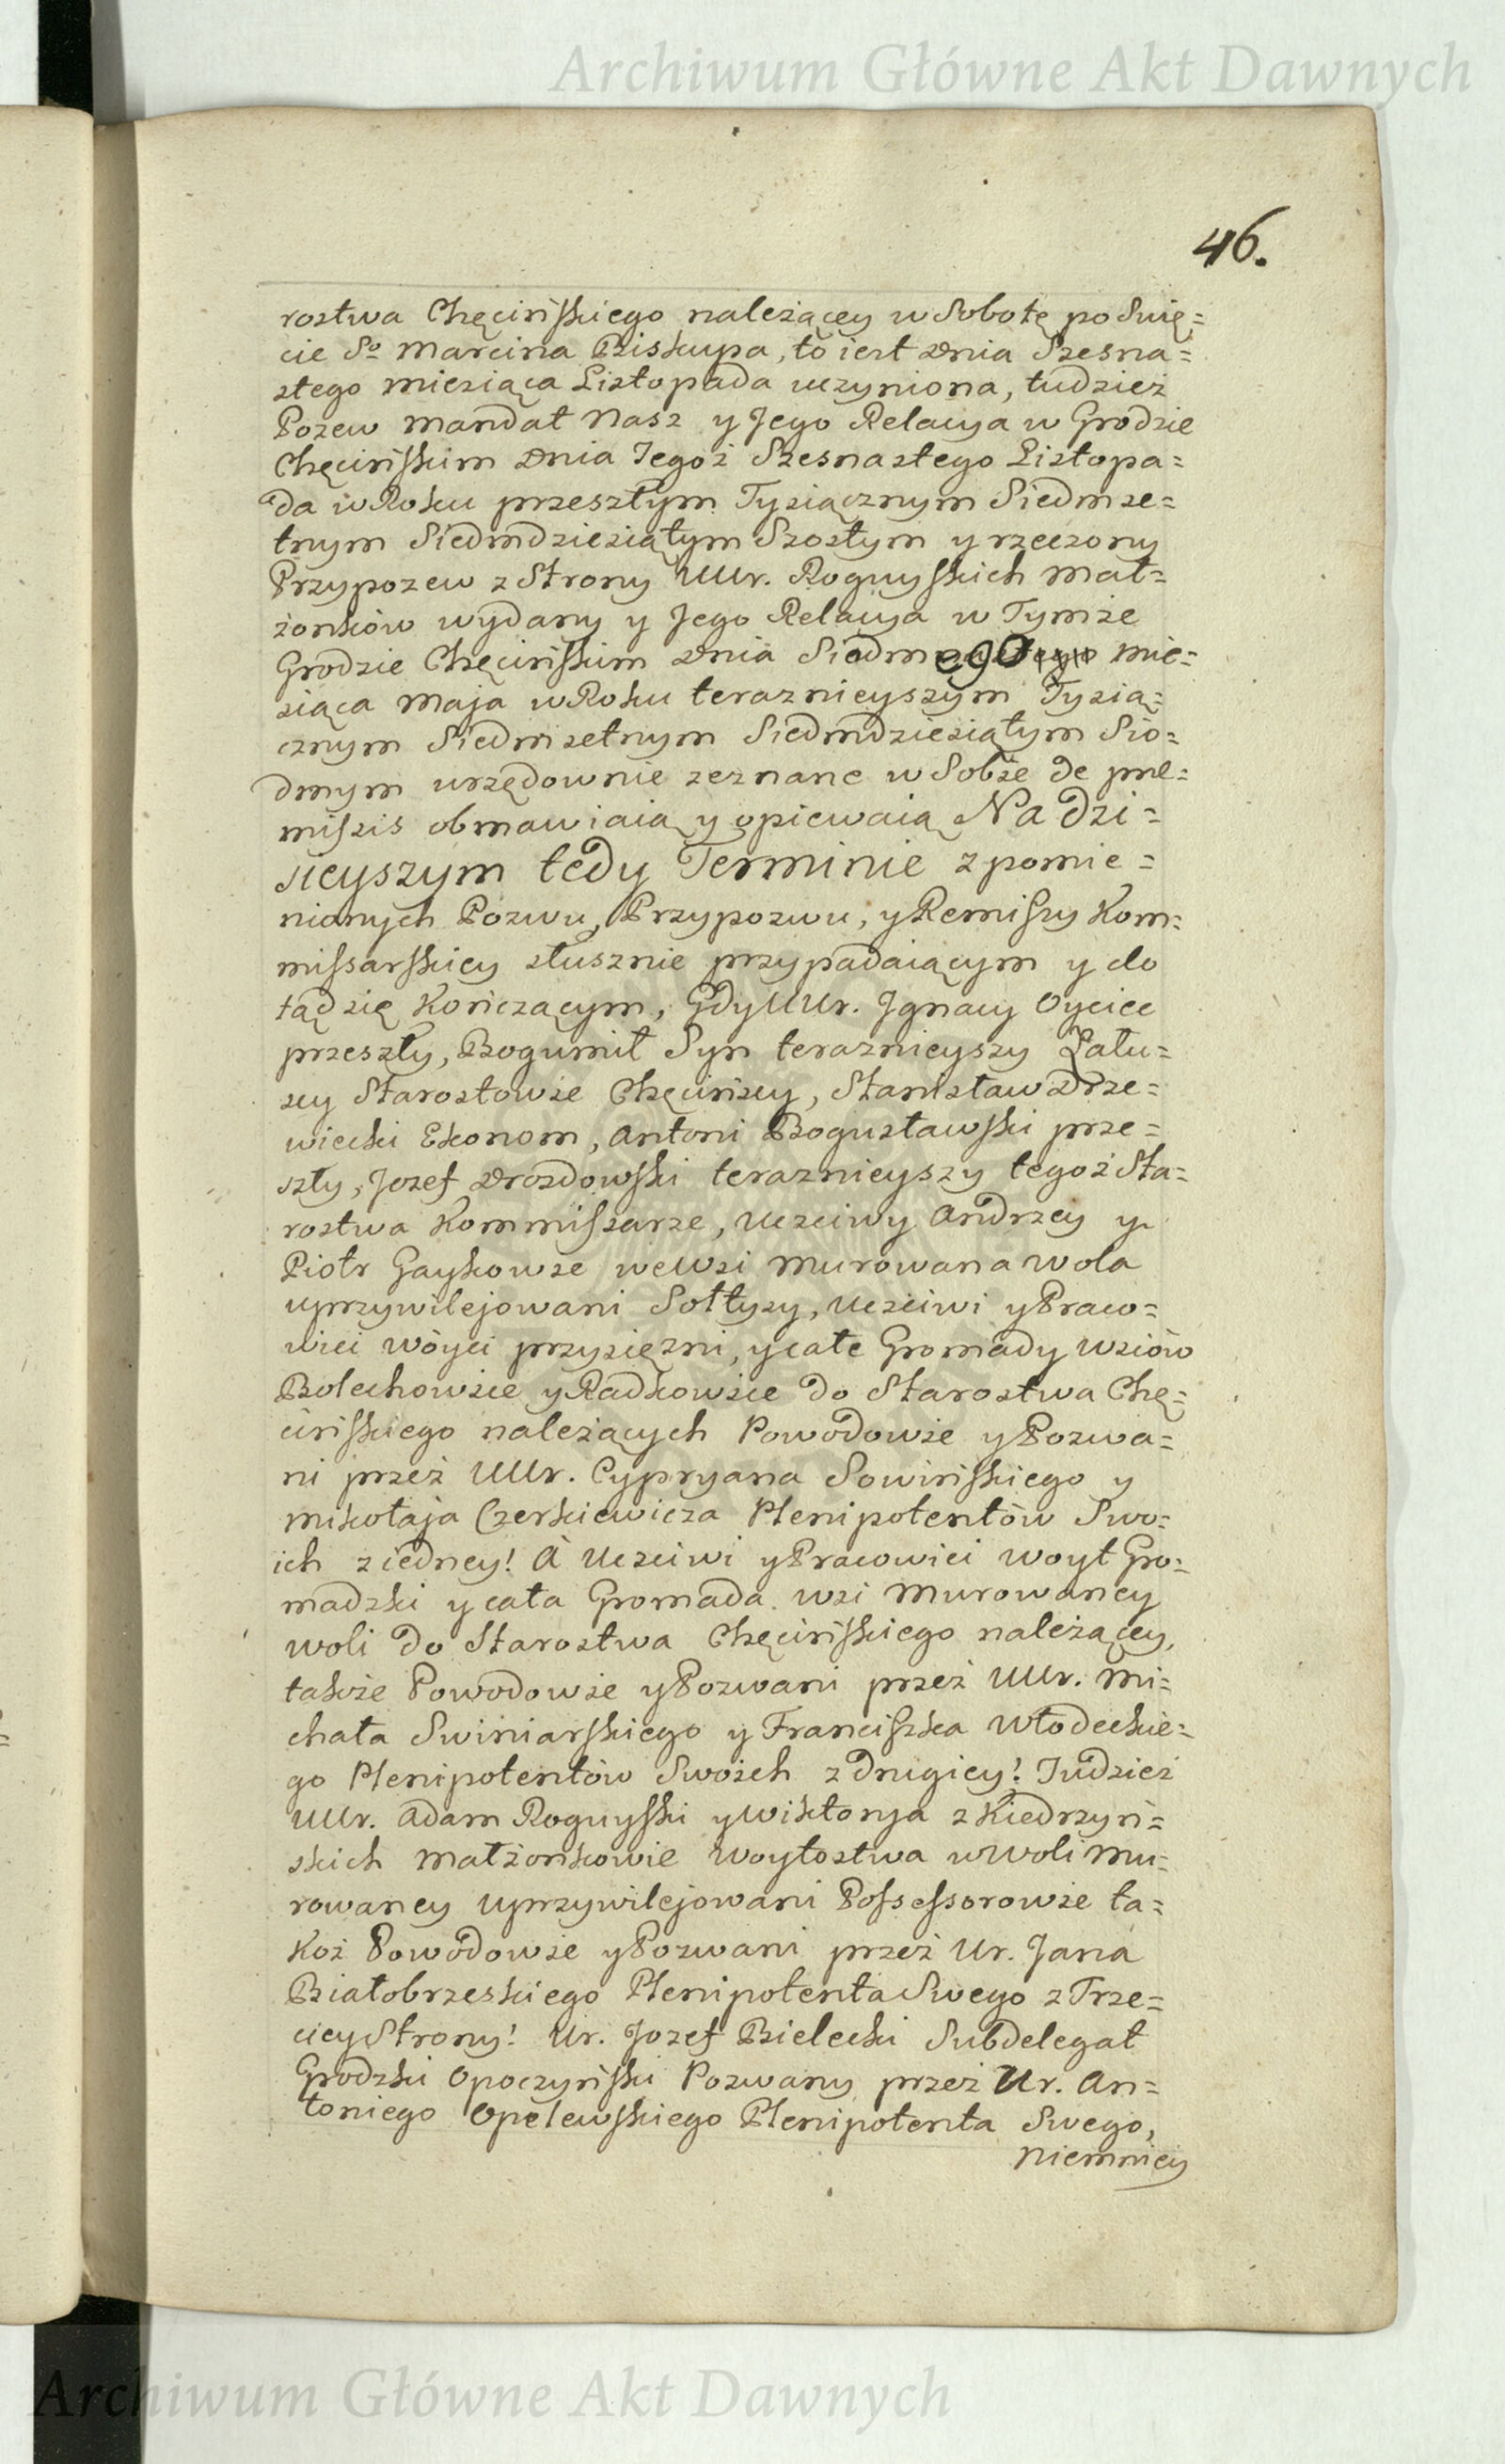 Archiwum Główne Akt Dawnych
46.
rostwa Chęcińskiego należącey w Sobotę po Swię=
cie So Marcina Biskupa, to iest Dnia Szesna=
stego miesiąca Listopada uczyniona, tudzież
Pozew Mandat Nasz y Jego Relacya w Grodzie
Chęcińskim Dnia Tegoż Szesnastego Listopa=
da w Roku przeszłym Tysiącznym Siedmse=
tnym Siedmdziesiątym Szostym y rzeczony
Przypozew z Strony UUr. Roguyskich Mał=
żonków wydany y Jego Relacya w Tymże
Grodzie Chęcińskim Dnia Siodmego Mie=
siąca Maja w Roku teraznieyszym Tysią=
cznym Siedmsetnym Siedmdziesiątym Sio=
dmym urzędownie zeznane w Sobie de præ=
missis obmawiaią y opiewaią Na Dzi=
sieyszym tedy Terminie z pomie=
nionych Pozwu, Przypozwu, y Remissy Kom=
missarskiey słusznie przypadaiącym y do
tąd się kończącym, Gdy UUr. Jgnacy Oyciec
przeszły, Bogumił Syn teraznieyszy Zału=
scy Starostowie Chęcińscy, Stanisław Drze=
wiecki Ekonom, Antoni Bogusławski prze=
szły, Jozef Drozdowski teraznieyszy tegoż Sta=
rostwa Kommissarze, Uczciwy Andrzey y
Piotr Gaykowie we Wsi Murowana Wola
uprzywilejowani Sołtysy, Uczciwi y Praco=
wici Wóyci przysięzni, y całe Gromady Wsiów
Bolechowice y Radkowice do Starostwa Chę=
cińskiego należących Powodowie y Pozwa=
ni przez UUr. Cypryana Sowińskiego y
Mikołaja Czerkiewicza Plenipotentów Swo=
ich z iedney! A Uczciwi y Pracowici Woyt Gro=
madzki y cała Gromada wsi Murowaney
Woli do Starostwa Chęcińskiego należącey,
także Powodowie y Pozwani przez UUr. Mi=
chała Swiniarskiego y Franciszka Włodeckie=
go Plenipotentów Swoich z Drugiey! Tudzież
UUr. Adam Roguyski y Wiktorya z Kiedrzyń=
skich Małżonkowie Woytostwa w Woli Mu=
rowaney uprzywilejowani Possessorowie ta=
koż Powodowie y Pozwani przez Ur. Jana
Białobrzeskiego Plenipotenta Swego z Trze=
ciey Strony! Ur. Jozef Bielecki Subdelegat
Grodzki Opoczyński Pozwany przez Ur. An=
toniego Opelewskiego Plenipotenta Swego,
Niemniey
Archiwum Główne Akt Dawnych